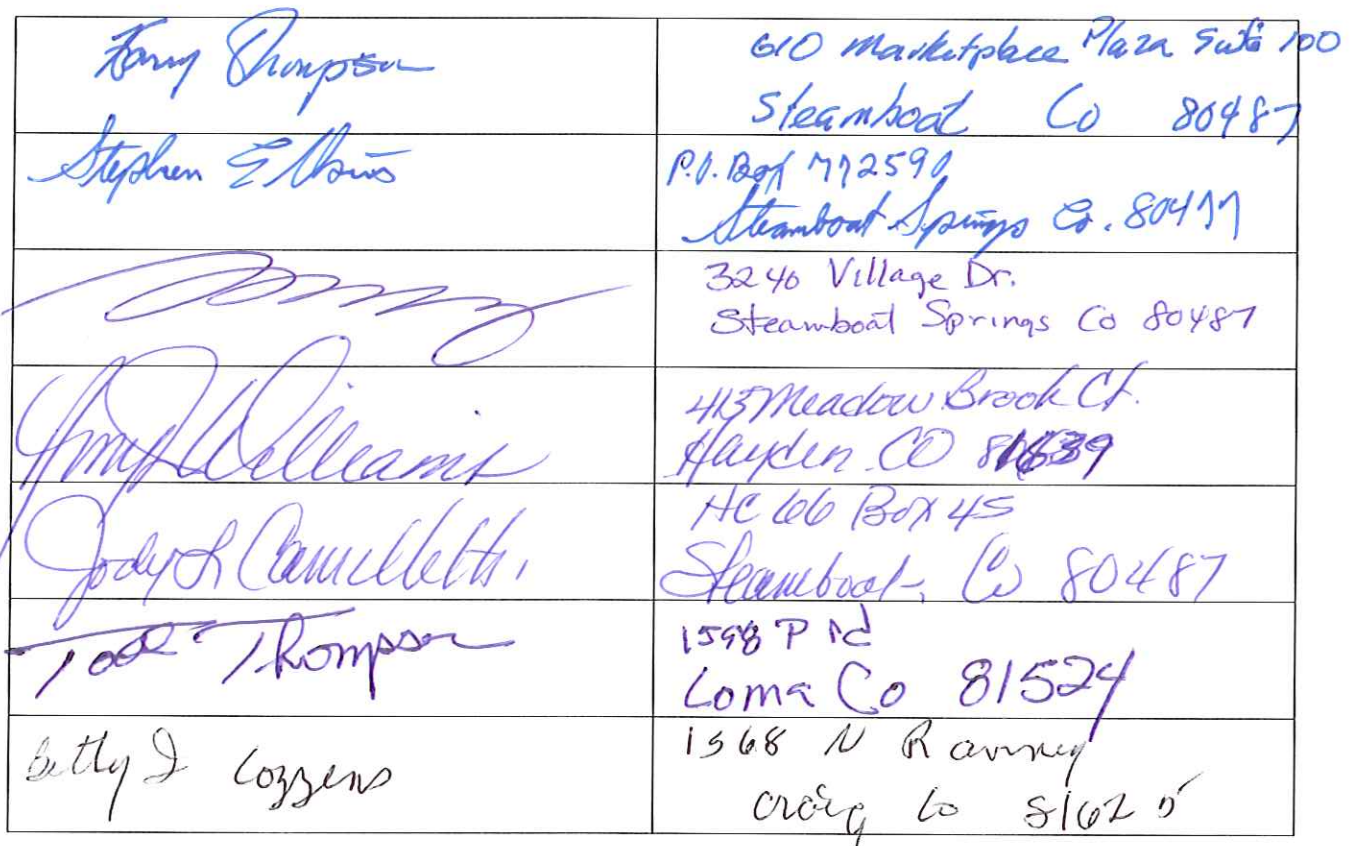 Thompson
610 Marketplace Plaza Suite 100
Steamboat Co 80487
Stephen Elkins
P.O. Box 772590
Steamboat Springs Co. 80477
3240 Village Dr.
Steamboat Springs Co 80487
Amy Williams
413 Meadow Brook Ct.
Hayden CO 81639
Jody L Camilletti
HC 66 Box 45
Steamboat, Co 80487
Todd Thompson
1598 P rd
Loma Co 81524
Betty J Cozzens
1568 N Ranney
Craig Co 81625